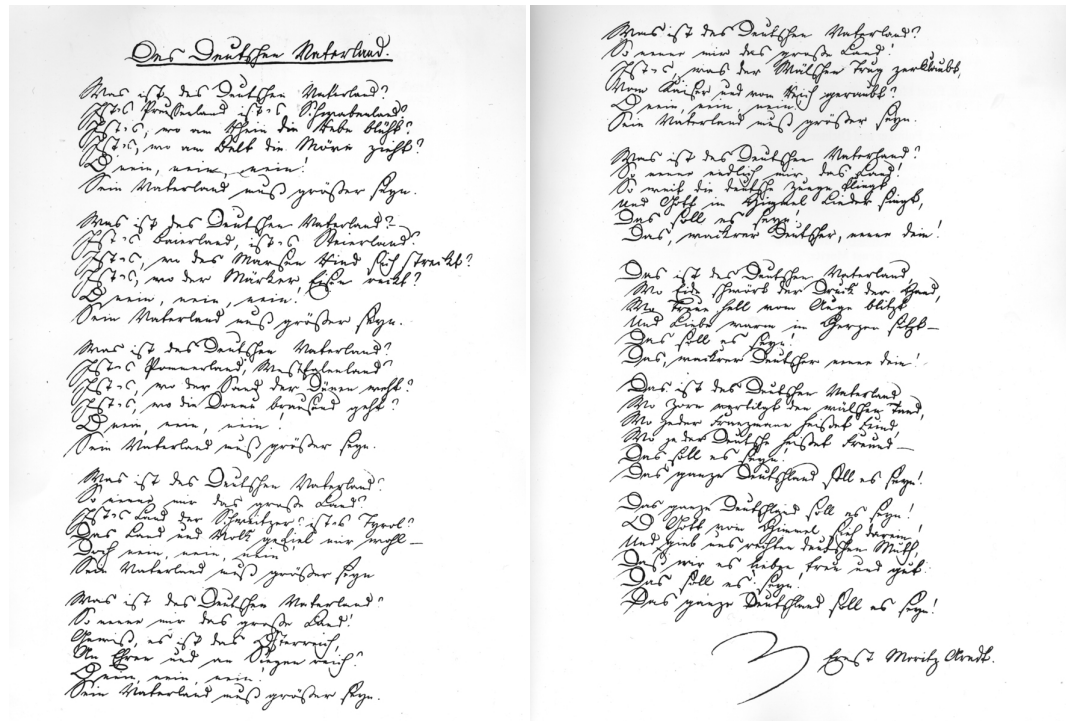 Des Deutschen Vaterland.
Was ist des Deutschen Vaterland?
Ist's Preussenland ist's Schwabenland?
Ist's, wo am Rhein die Rebe blüht?
Ist's, wo am Belt die Möve zieht?
O nein, nein, nein!
Sein Vaterland muß größer seyn.
Was ist des Deutschen Vaterland?
Ist's Baierland, ist's Steierland?
Ist's, wo des Marsen Rind sich streckt?
Ist's, wo der Märker Eisen reckt?
O nein, nein, nein!
Sein Vaterland muß größer seyn.
Was ist des Deutschen Vaterland?
Ist's Pommerland, Westfalenland?
Ist's, wo der Sand der Dünen weht?
Ist's, wo die Donau brausend geht?
O nein, nein, nein!
Sein Vaterland muß größer seyn.
Was ist des Deutschen Vaterland?
So nenne mir das große Land!
Ist's Land der Schweitzer? ist's Tyrol?
Das Land und Volk gefiel mir wohl—
Doch nein, nein, nein!
Sein Vaterland muß größer seyn
Was ist des Deutschen Vaterland?
So nenne mir das große Land!
Gewiß, es ist das Österreich,
An Ehren und an Siegen reich?
O nein, nein, nein!
Sein Vaterland muß größer seyn.
Was ist des Deutschen Vaterland?
So nenne mir das große Land!
Ist's, was der Wälschen Trug zerklaubt,
Vom Kaiser und vom Reich geraubt?
O nein, nein, nein!
Sein Vaterland muß größer seyn.
Was ist des Deutschen Vaterland?
So nenne endlich mir das Land!
So weit die deutsche Zunge klingt
Und Gott im Himmel Lieder singt,
Das soll es seyn!
Das, wackrer Deutscher, nenne dein!
Das ist des Deutschen Vaterland,
Wo Eide schwört der Druck der Hand,
Wo Treue hell vom Auge blitzt
Und Liebe warm im Herzen sitzt—
Das soll es seyn!
Das, wackrer Deutscher nenne dein!
Das ist des Deutschen Vaterland,
Wo Zorn vertilgt den wälschen Tand,
Wo jeder Franzmann heißet Feind,
Wo jeder Deutsche heißet Freund—
Das soll es seyn!
Das ganze Deutschland soll es seyn!
Das ganze Deutschland soll es seyn!
O Gott vom Himmel, sieh darein!
Und gieb uns rechten deutschen Muth,
Daß wir es lieben treu und gut.
Das soll es seyn.
Das ganze Deutschland soll es seyn!
Ernst Moritz Arndt.